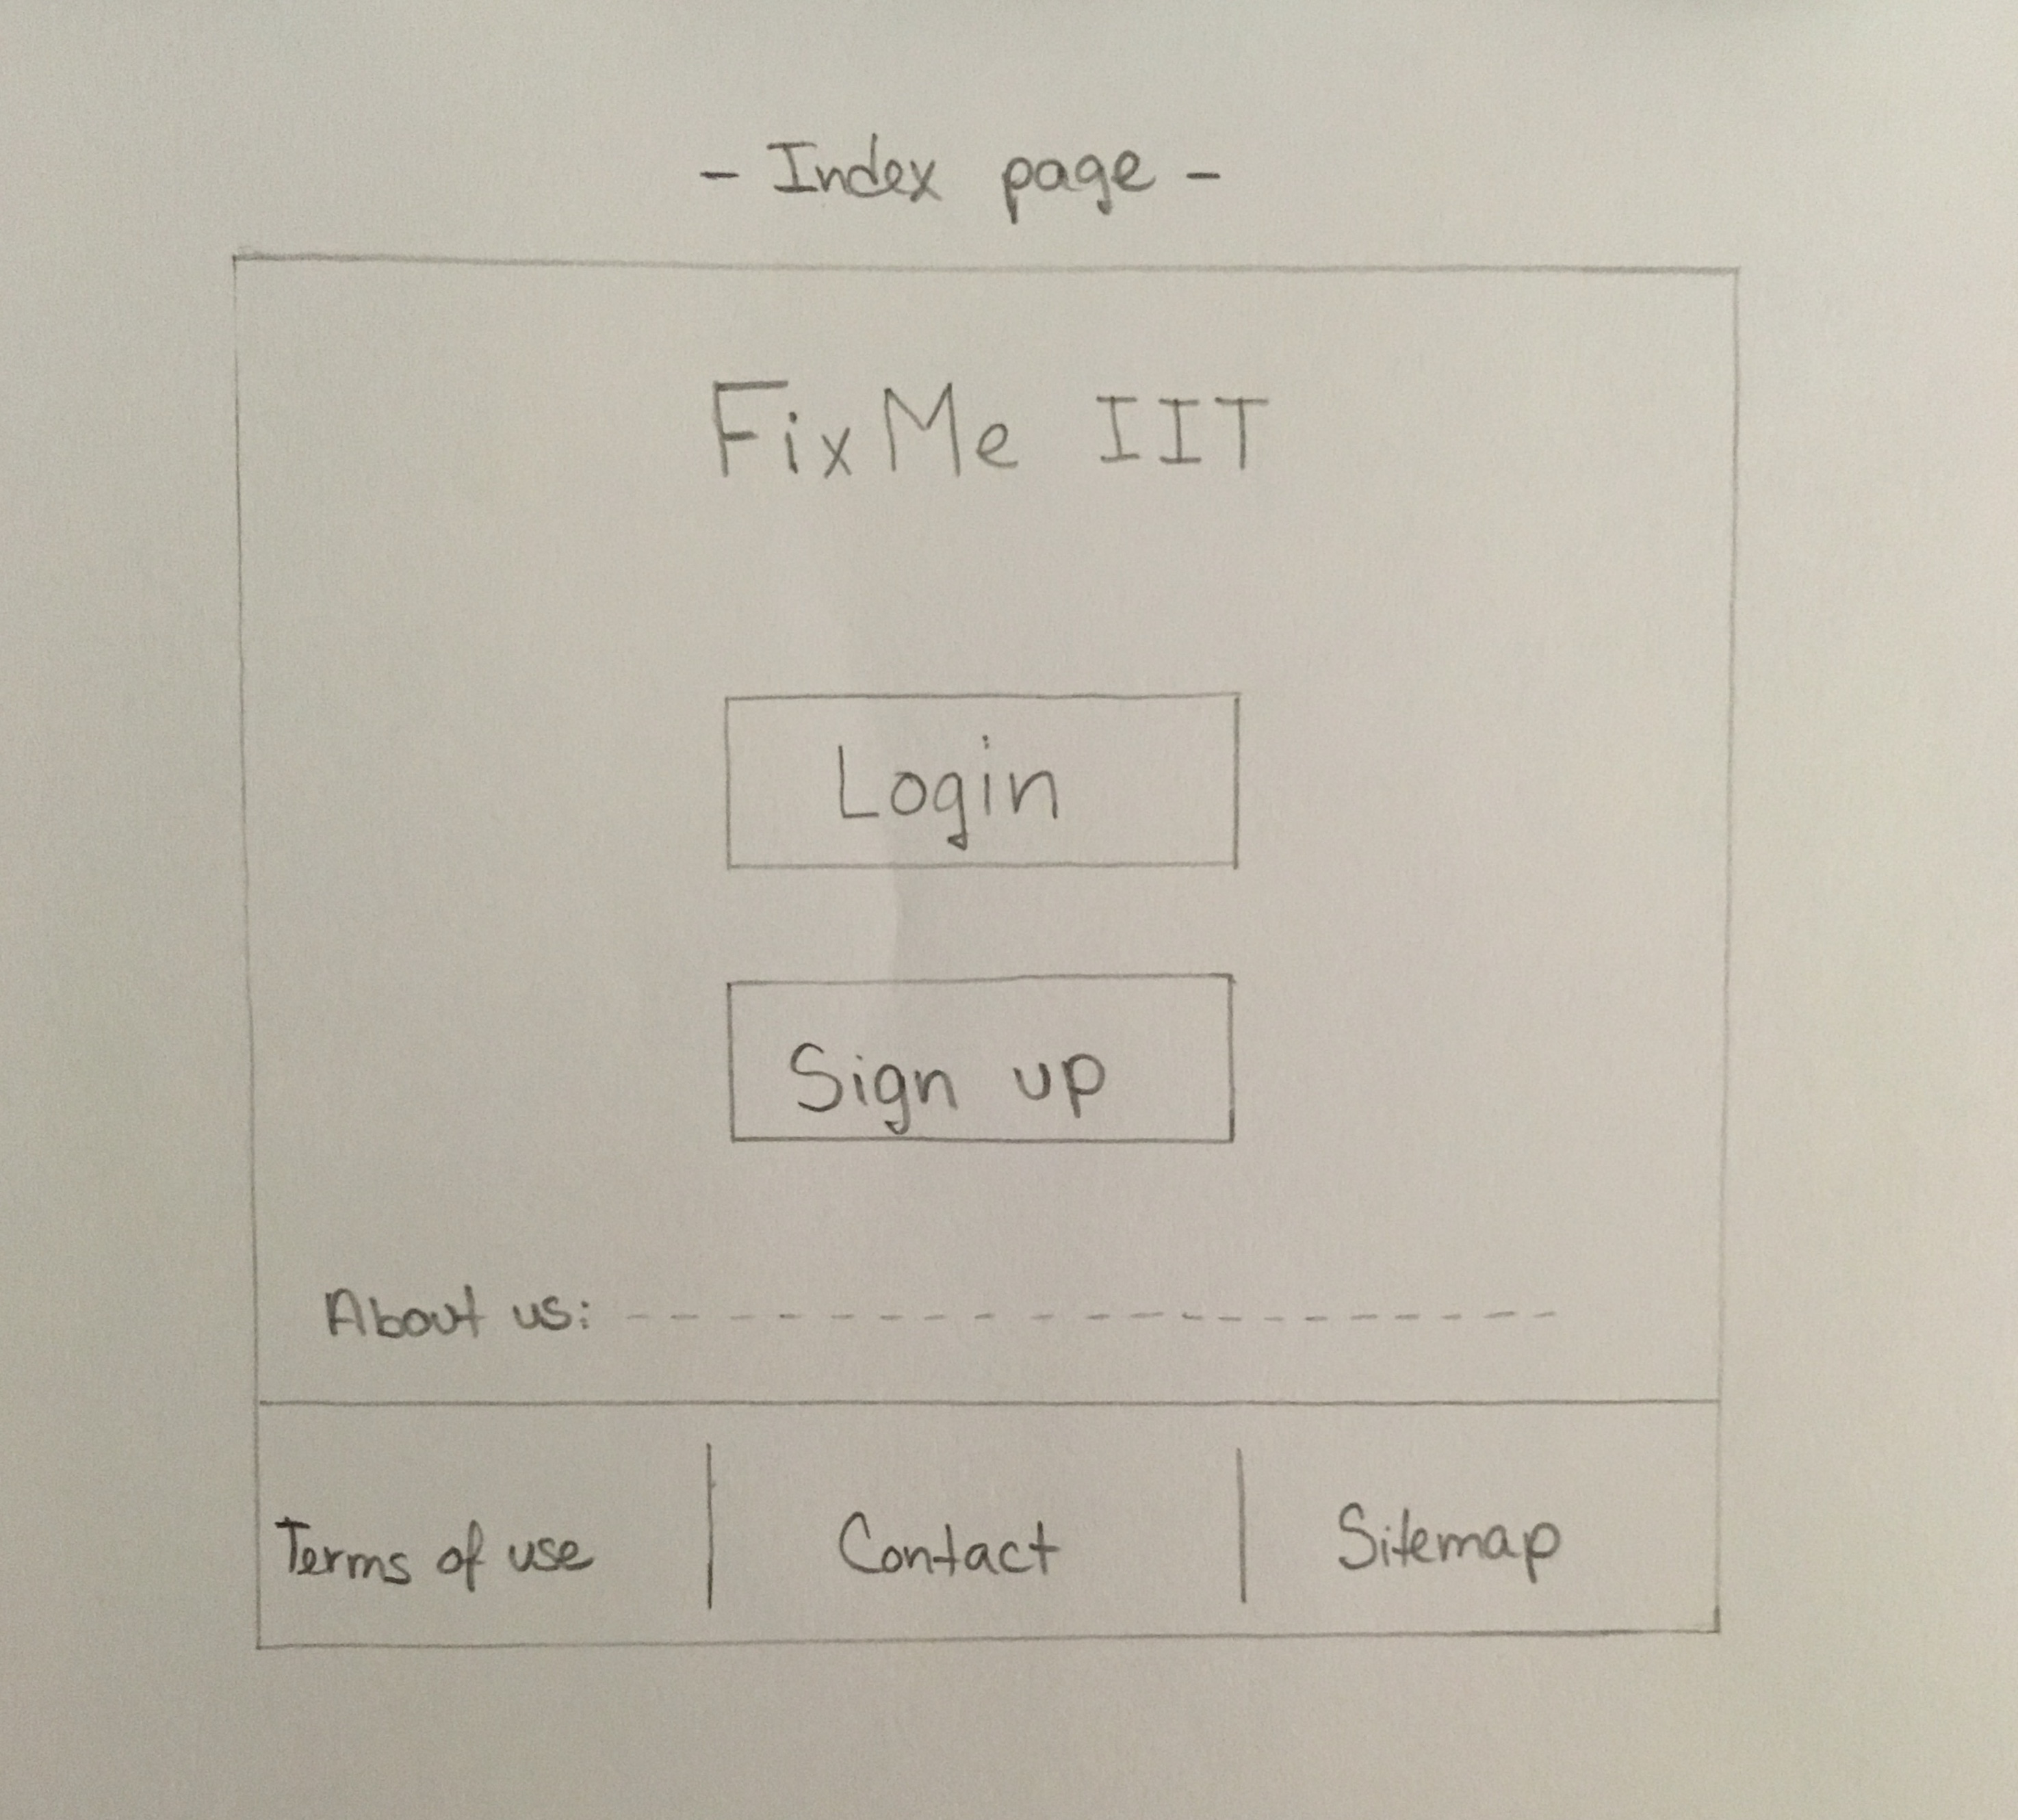 - Index page -
FixMe IIT
Login
Sign up
About us: - - - - - - - - - - - - - - - - - -
Terms of use | Contact | Sitemap